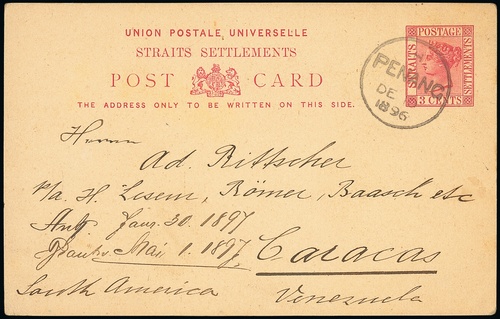 UNION POSTALE UNIVERSELLE
STRAITS SETTLEMENTS
POST CARD
THE ADDRESS ONLY TO BE WRITTEN ON THIS SIDE.
STRAITS POSTAGE SETTLEMENTS
3 CENTS
PENANG
DE
1896
Herrn
Ad. Rittscher
p/a. H. Lesem, Römer, Baasch etc
Ang. Janr. 30. 1897
Mai 1. 1897. Caracas
South America Venezuela